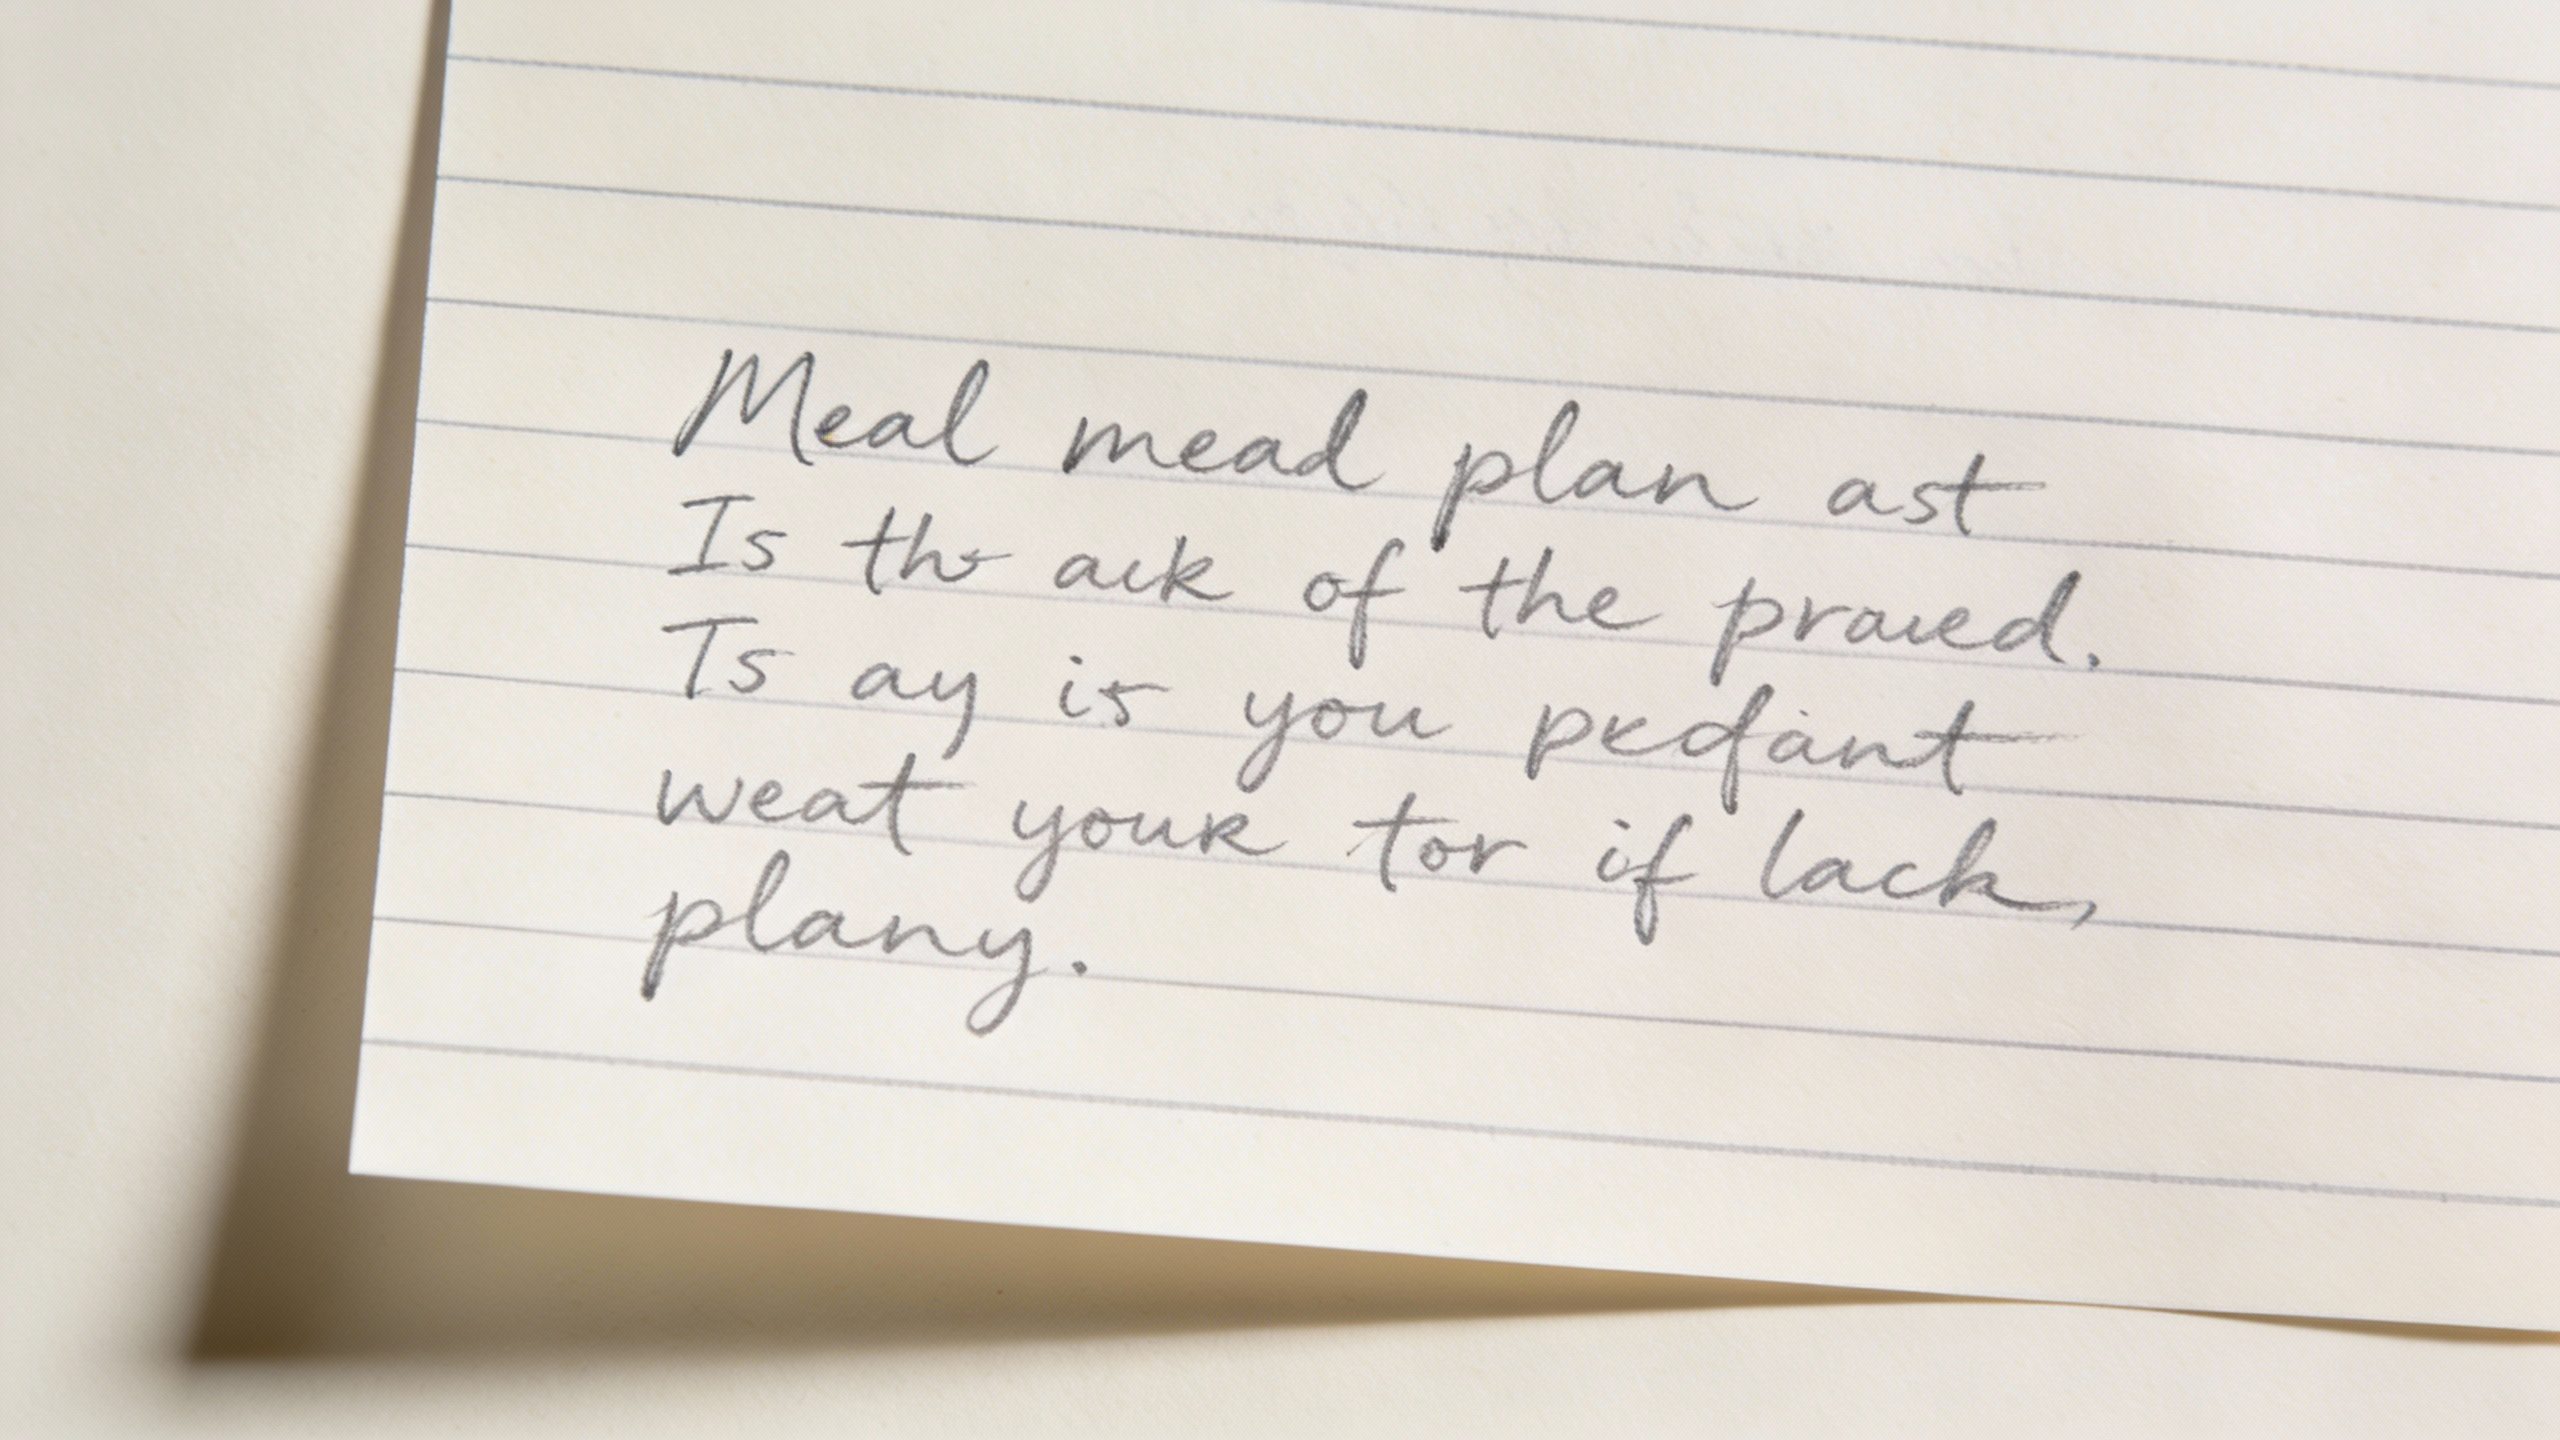 Meal mead plan ast
Is the ack of the praied.
Ts ay is you
weat your tor if lack,
plany.